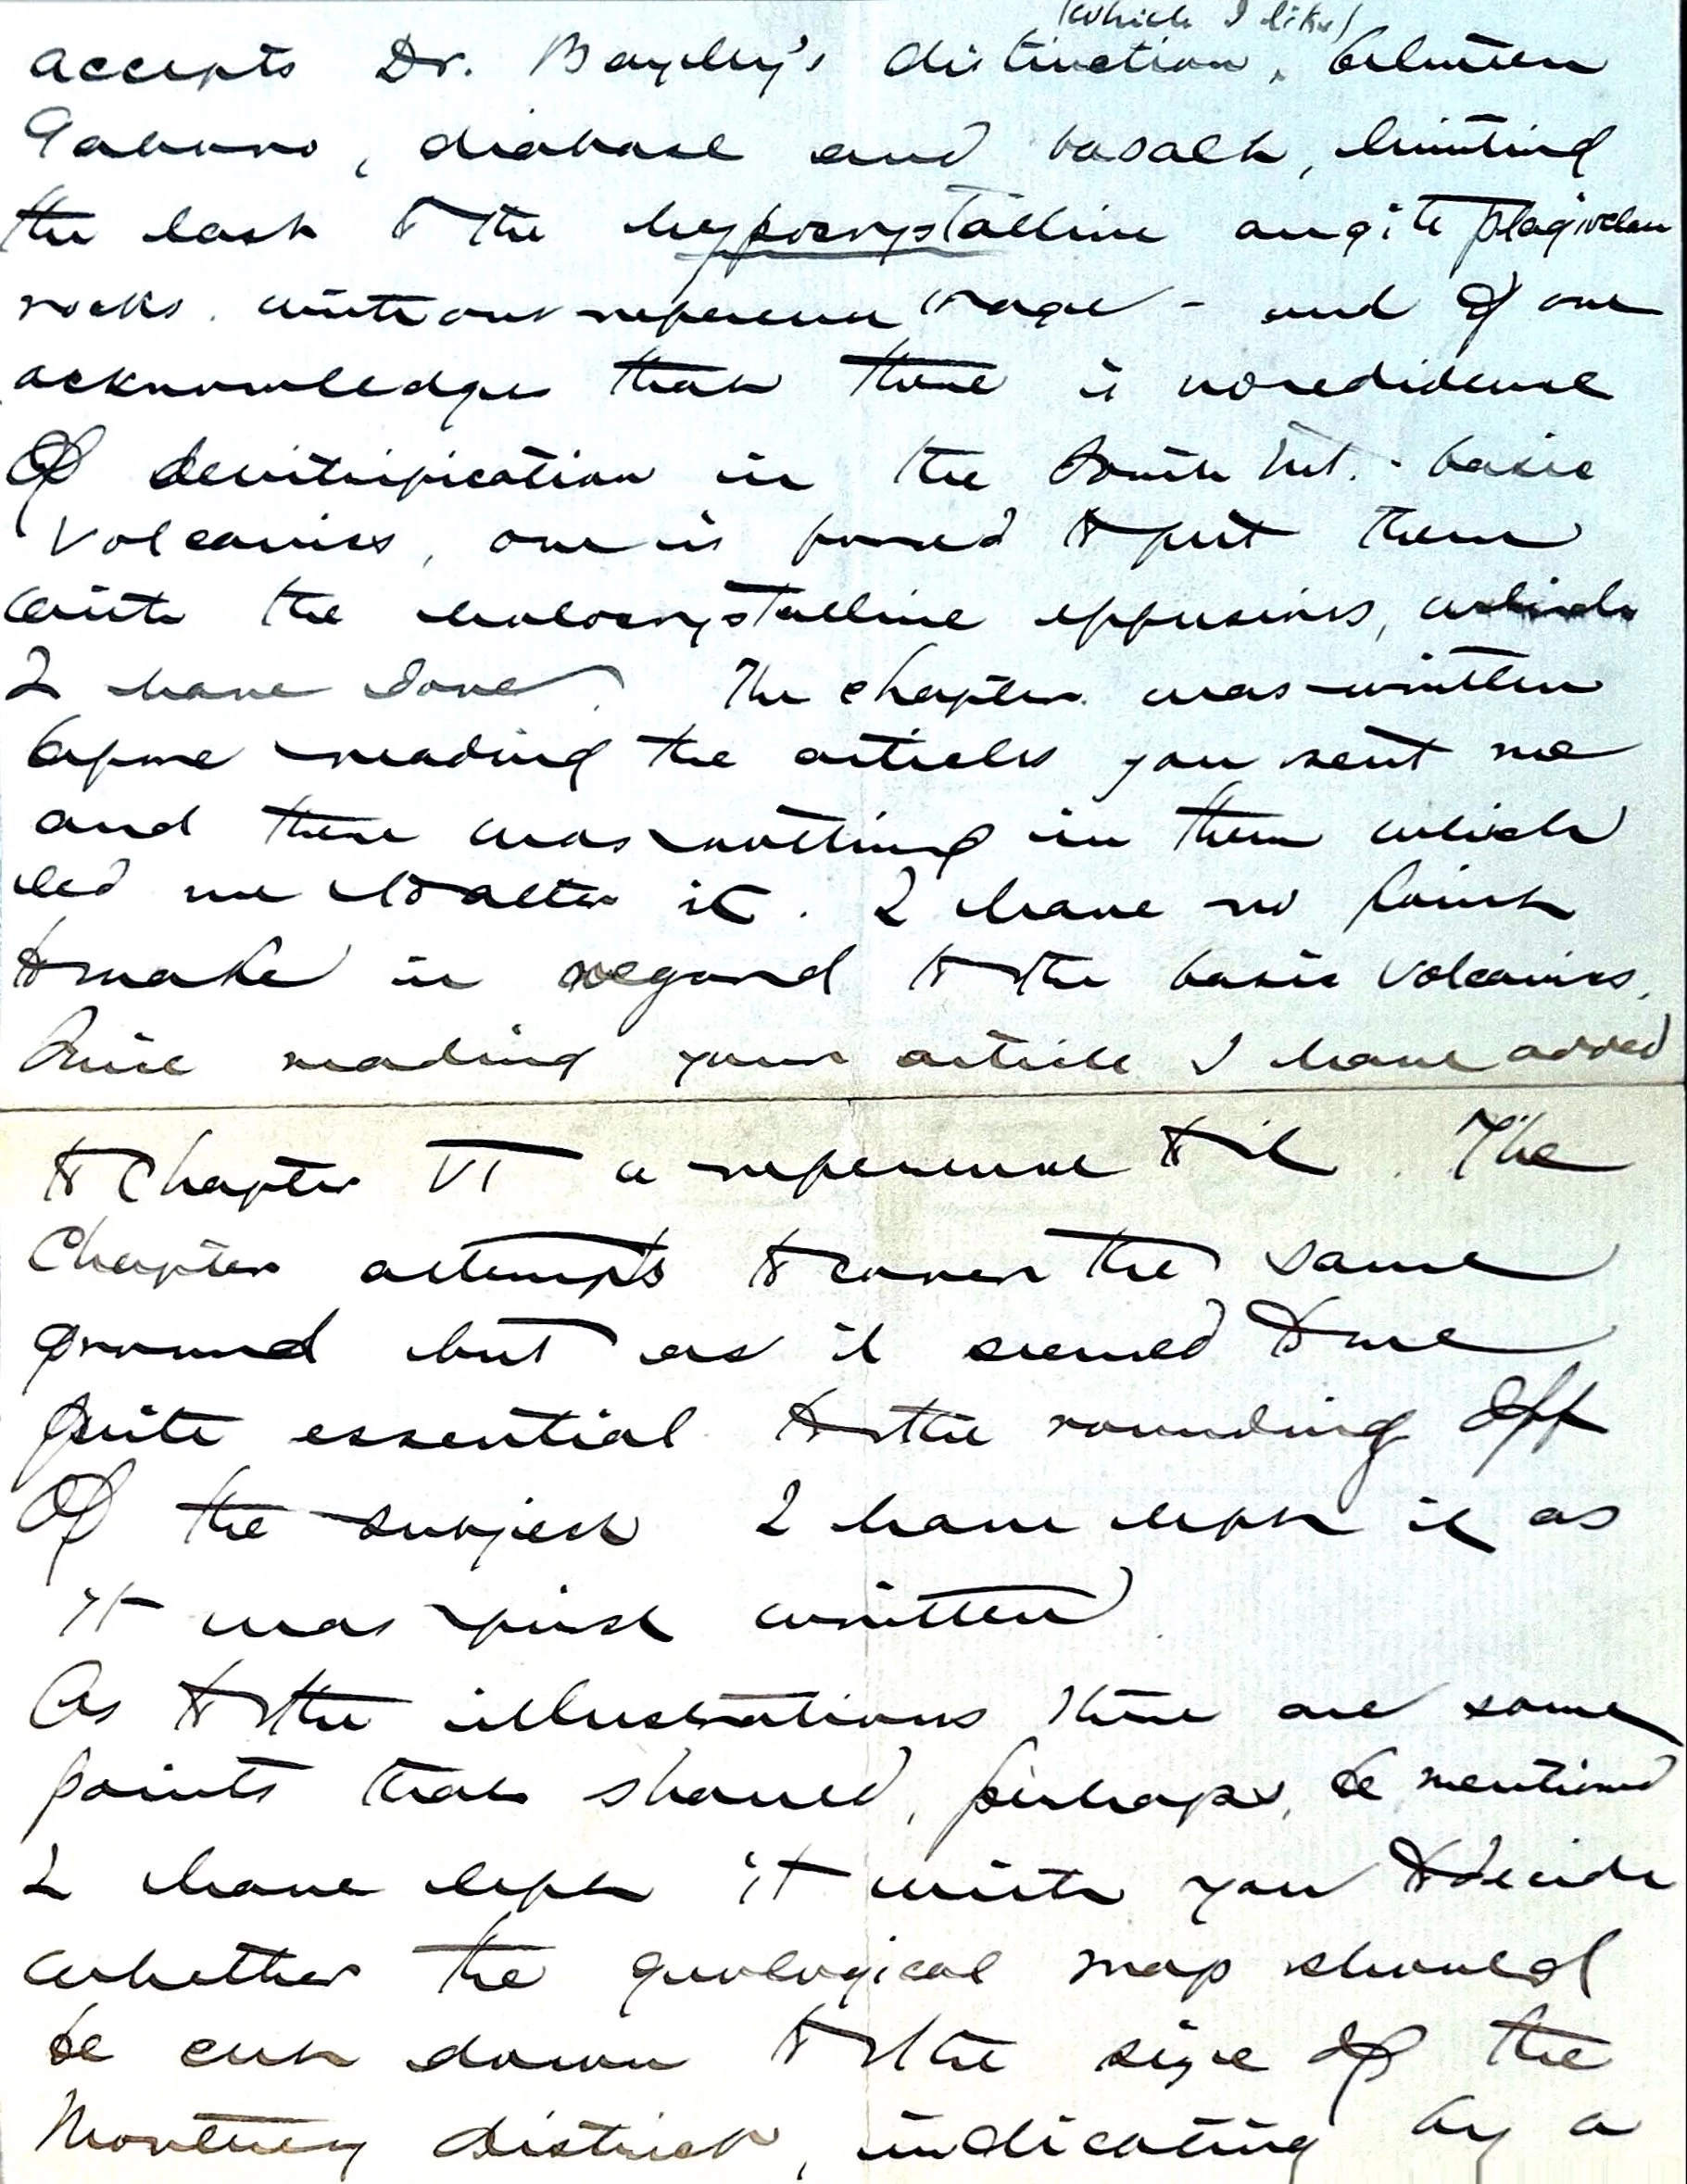 (which I like)
accepts Dr. Bayley's distinction, between
Gabbro, diabase and basalt, limiting
the last to the hypocrystalline augite plagioclase
rocks. without reference to age - and if one
acknowledges that there is no evidence
of devitrification in the South Mt. - basic
Volcanics, one is forced to put them
with the holocrystalline effusives, which
I have done. The chapter was written
before reading the articles you sent me
and there was nothing in them which
led me to alter it. I have no point
to make in regard to the basic volcanics.
Since reading your article I have added
to Chapter VI a reference to it. The
Chapter attempts to cover the same
ground but as it seemed to me
quite essential to the rounding off
of the subject I have left it as
it was first written.
As to the illustrations there are some
points that should, perhaps, be mentioned
I have left it with you to decide
whether the geological map should
be cut down to the size of the
Monterey district, indicating by a